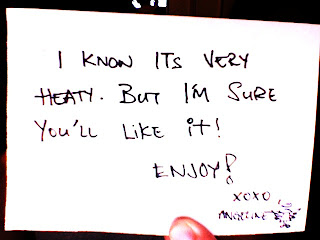 I KNOW ITS VERY
HEATY. BUT I'M SURE
YOU'LL LIKE IT!
ENJOY!
XOXO